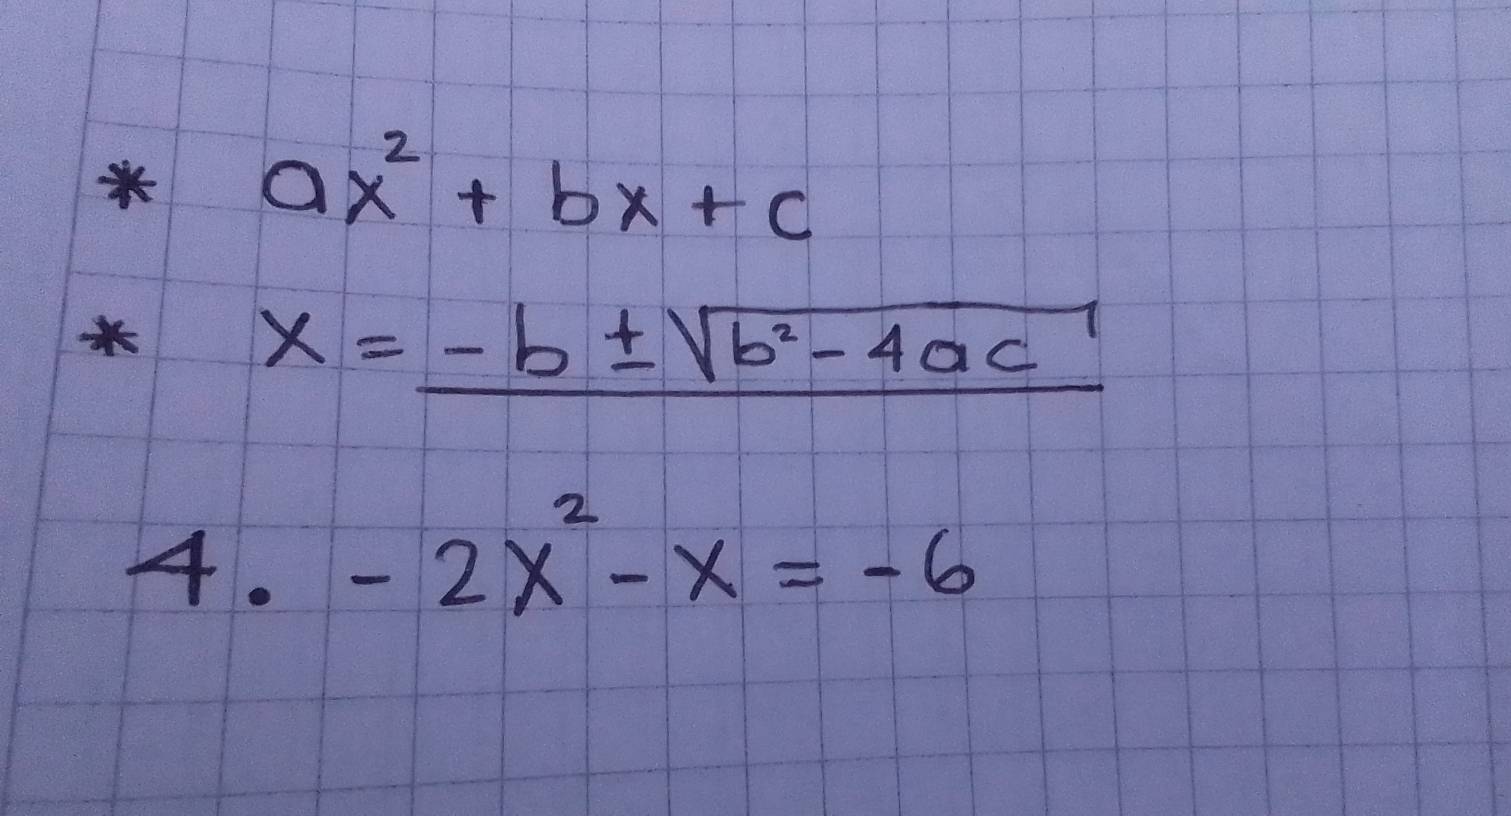 * ax² + bx + c
* x = -b ± √b² - 4ac
4. - 2x² - x = - 6